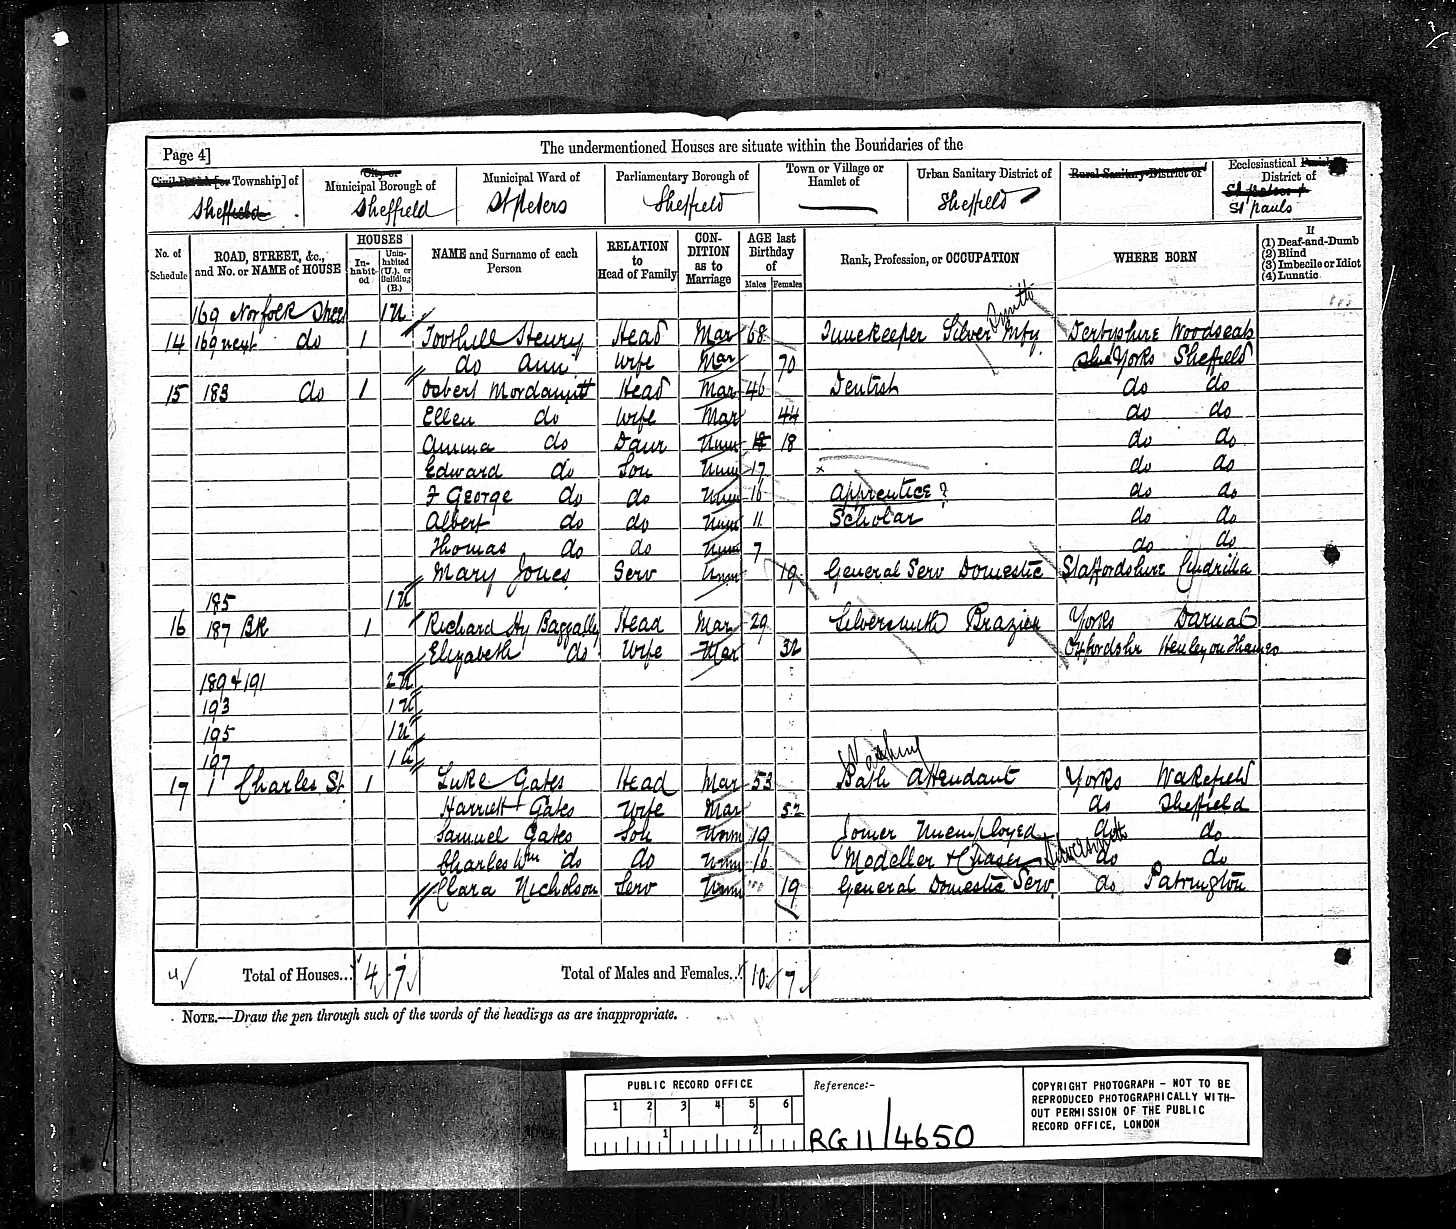 Page 4]
The undermentioned Houses are situate within the Boundaries of the
Civil Parish [or Township] of
Sheffield
City or
Municipal Borough of
Sheffield
Municipal Ward of
St Peters
Parliamentary Borough of
Sheffield
Town or Village or
Hamlet of
Urban Sanitary District of
Sheffield
Rural Sanitary District of
Ecclesiastical Parish or
District of
St pauls
No. of
Schedule
ROAD, STREET, &c.,
and No. or NAME of HOUSE
HOUSES
In-
habit-
ed
Unin-
habited
(U.), or
Building
(B.)
NAME and Surname of each
Person
RELATION
to
Head of Family
CON-
DITION
as to
Marriage
AGE last
Birthday
of
Males Females
Rank, Profession, or OCCUPATION
WHERE BORN
If
(1) Deaf-and-Dumb
(2) Blind
(3) Imbecile or Idiot
(4) Lunatic
169 Norfolk Street 1 U
14 169 next do 1 Toothill Henry Head Mar 68 Timekeeper Silver Mfy. Derbyshire Woodseats
do Ann Wife Mar 70 Yorks Sheffield
15 183 do 1 Head Mar 46 Dentist do do
Ellen do Wife Mar 44 do do
do Daur Unm 18 do do
Edward do Son Unm 17 x do do
F George do do Unm 16 Apprentice? do do
Albert do do Unm 11 Scholar do do
Thomas do do Unm 7 do do
Mary Jones Serv Unm 19 General Serv Domestic Staffordshire
185 1 U
16 187 BK 1 Richard Hy Baggally Head Mar 29 Silversmith Brazier Yorks Darnal
Elizabeth do Wife Mar 32 Oxfordshr Henley on Thames
189 & 191 2 U
193 1 U
195 1 U
197 1 U
17 1 Charles St. 1 Luke Gates Head Mar 53 Bath Attendant Yorks Wakefield
Harriett Gates Wife Mar 52 do Sheffield
Samuel Gates Son Unm 19 Joiner Unemployed do do
Charles Wm do do Unm 16 Modeller & Chaser do do
Clara Nicholson Serv Unm 19 General Domestic Serv. do Patrington
4 Total of Houses... 4 7 Total of Males and Females... 10 7
NOTE.—Draw the pen through such of the words of the headings as are inappropriate.
PUBLIC RECORD OFFICE
1 2 3 4 5 6
1 2
Reference:-
RG 11/4650
COPYRIGHT PHOTOGRAPH - NOT TO BE
REPRODUCED PHOTOGRAPHICALLY WITH-
OUT PERMISSION OF THE PUBLIC
RECORD OFFICE, LONDON